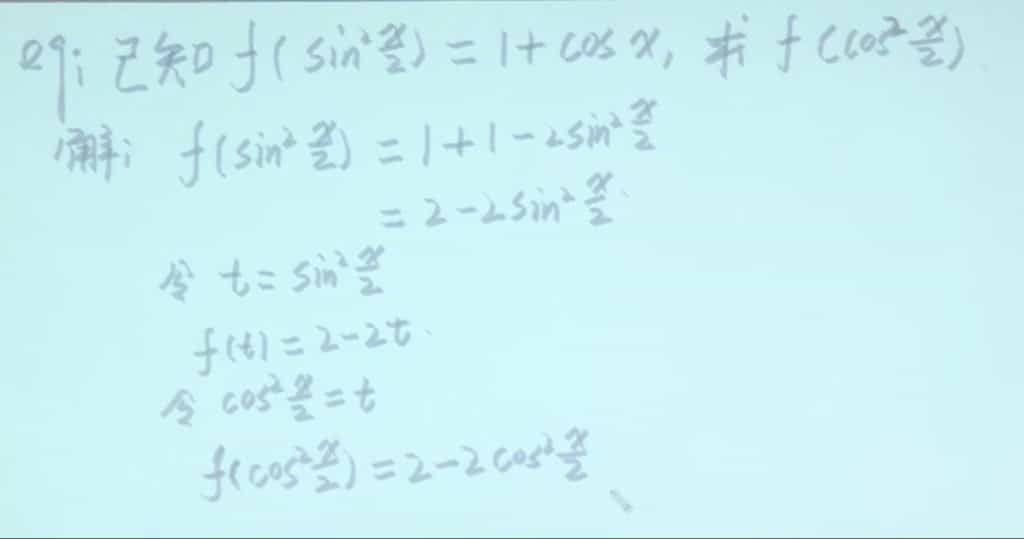 eg: 已知 f(sin²x/2) = 1 + cos x, 求 f(cos²x/2)
解: f(sin²x/2) = 1 + 1 - 2sin²x/2
= 2 - 2sin²x/2.
令 t = sin²x/2
f(t) = 2 - 2t.
令 cos²x/2 = t
f(cos²x/2) = 2 - 2cos²x/2